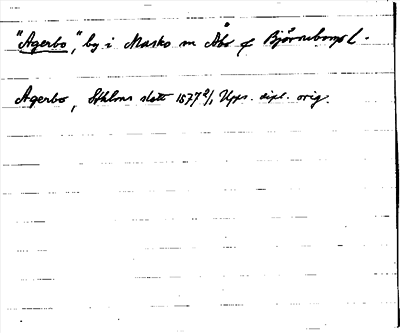 "Agerbo", by i Masko sn Åbo o Björneborgs l.
Agerbo, Sthlms slott 1577 2/1 Upps. dipl. orig.